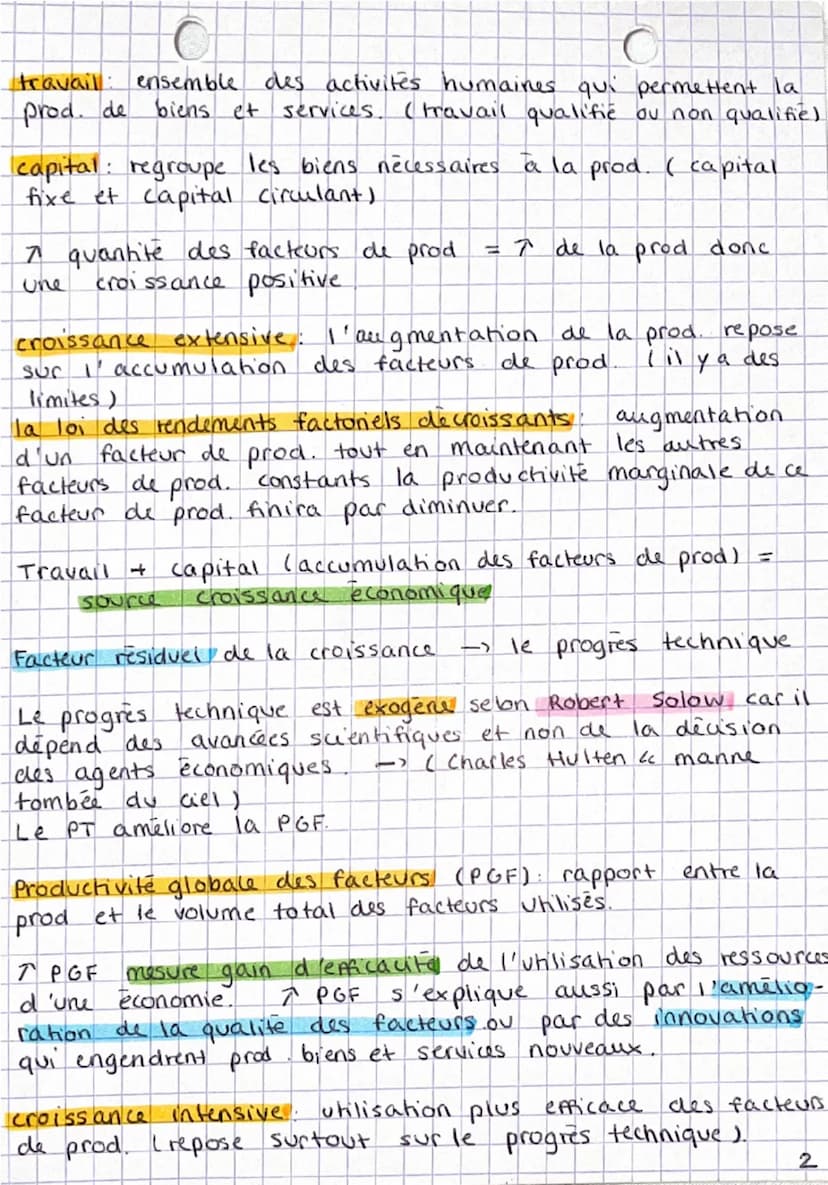 travail : ensemble des activités humaines qui permettent la
prod. de biens et services. (travail qualifié ou non qualifié)
capital : regroupe les biens nécessaires à la prod. (capital
fixe et capital circulant)
↗ quantité des facteurs de prod = ↗ de la prod donc
une croissance positive
croissance extensive : l'augmentation de la prod. repose
sur l'accumulation des facteurs de prod. (il y a des
limites)
la loi des rendements factoriels décroissants : augmentation
d'un facteur de prod. tout en maintenant les autres
facteurs de prod. constants la productivité marginale de ce
facteur de prod. finira par diminuer.
Travail + capital (accumulation des facteurs de prod) =
source croissance économique
Facteur résiduel de la croissance → le progrès technique
Le progrès technique est exogène selon Robert Solow car il
dépend des avancées scientifiques et non de la décision
des agents économiques. → (Charles Hulten << manne
tombée du ciel)
Le PT améliore la PGF.
Productivité globale des facteurs (PGF) : rapport entre la
prod et le volume total des facteurs utilisés.
↗ PGF mesure gain d'efficacité de l'utilisation des ressources
d'une économie. ↗ PGF s'explique aussi par l'amélio-
ration de la qualité des facteurs ou par des innovations
qui engendrent prod. biens et services nouveaux.
croissance intensive : utilisation plus efficace des facteurs
de prod. (repose surtout sur le progrès technique).
2